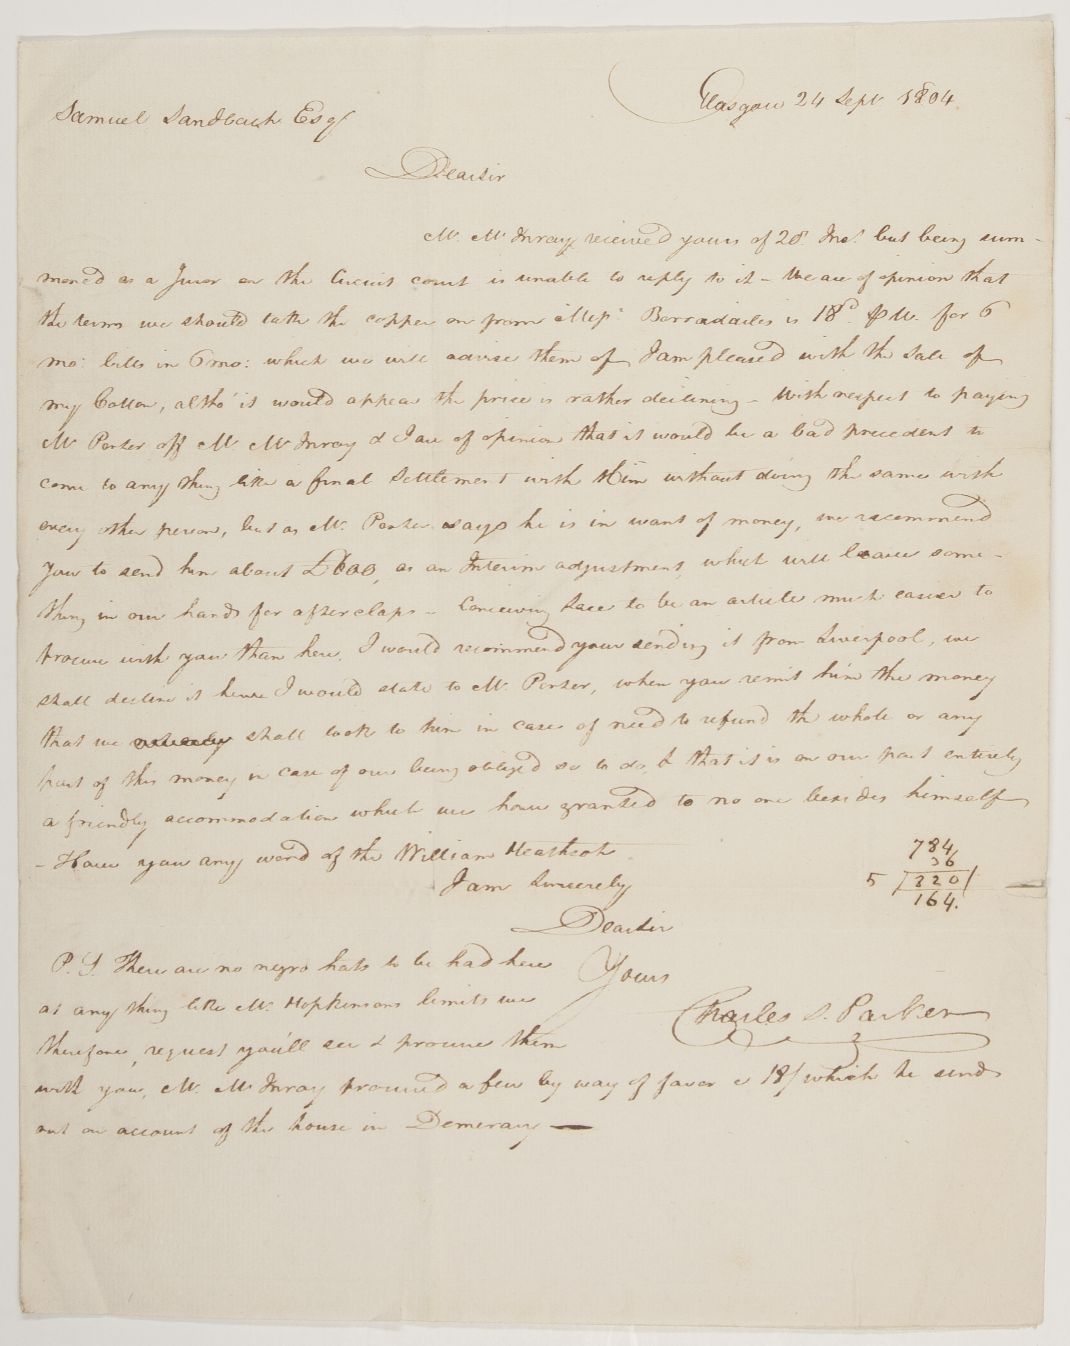 Glasgow 24 Sept 1804
Samuel Sandbach Esqr
Dear Sir
Mr. McInroy received yours of 20 Inst. but being sum-
moned as a Juror on the Circuit court is unable to reply to it - We are of opinion that
the terms we should take the copper on from Messrs. Borradailes is 18d. for 6
mo: bills in 6 mo: which we will advise them of, I am pleased with the Sale of
my Cotton, altho' it would appear the price is rather declining - With respect to paying
Mr Porter off Mr. McInroy & I are of opinion that it would be a bad precedent to
come to any thing like a final Settlement with Him without doing the same with
every other person, but as Mr. Porter says he is in want of money, we recommend
you to send him about £600, as an Interim adjustment, which will leave some-
thing in our hands for afterclaps - Conceiving Lace to be an article much easier to
procure with you than here, I would recommend your sending it from Liverpool, we
shall decline it hence I would state to Mr. Porter, when you remit him the money
that we shall look to him in case of need to refund the whole or any
part of this money in case of our being obliged so to do, & that it is on our part entirely
a friendly accommodation which we have granted to no one besides himself
- Have you any word of the William Heathcote
I am Sincerely
Dear Sir
Yours
Charles S. Parker
784
36
5 /820/
164.
P.S. There are no negro hats to be had here
at any thing like Mr. Hopkinsons limits we
therefore, request you'll see & procure them
with you, Mr. McInroy procured a few by way of favor @ 18/ which he sends
out on account of the house in Demerary -